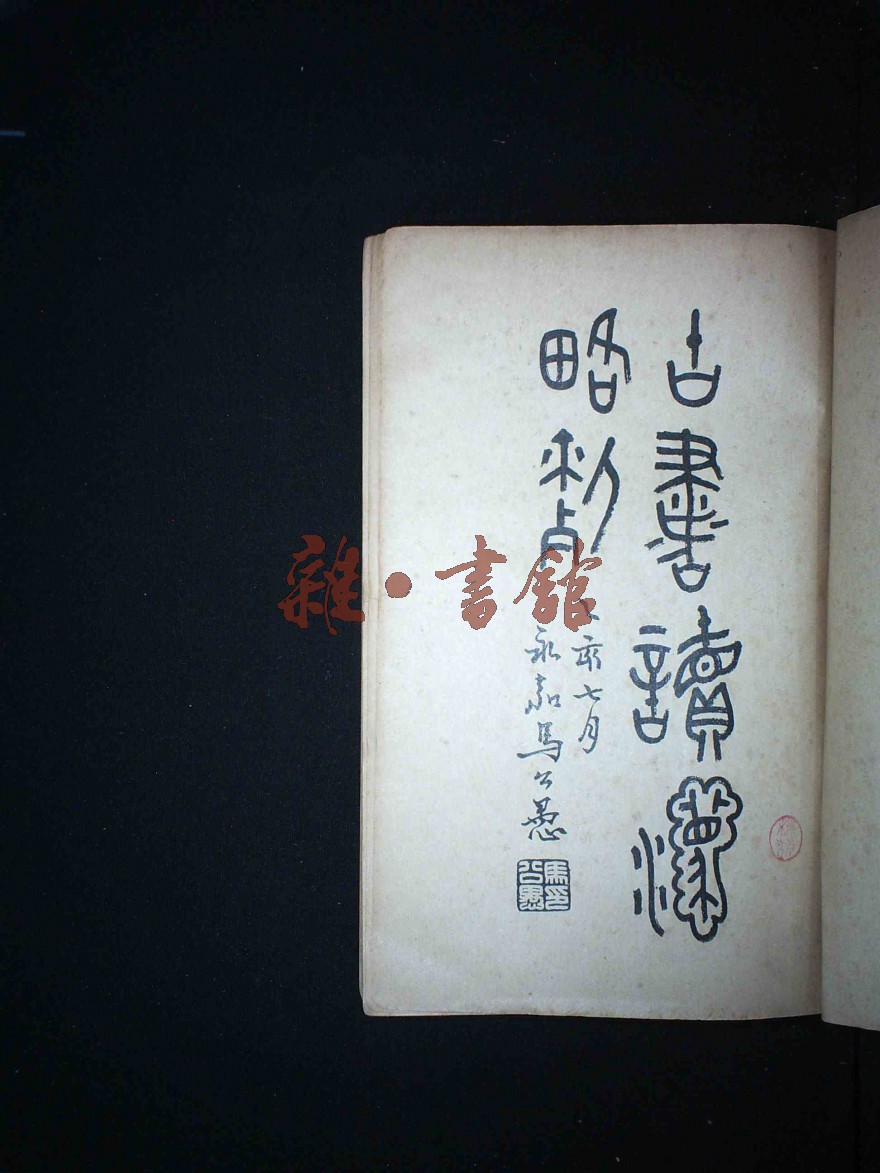 古書讀灋
略例
亥七月
永嘉馬公愚
馬印
公愚
雜·書館